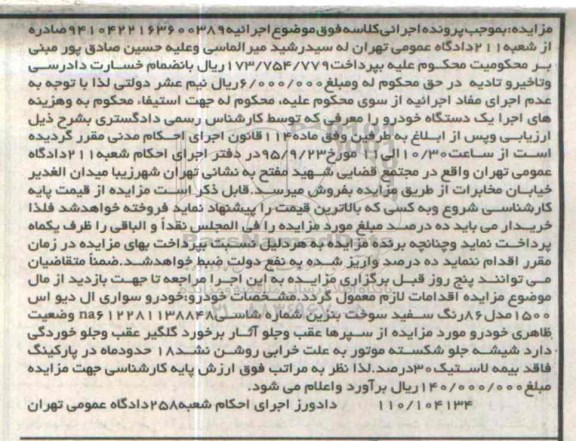 مزایده: بموجب پرونده اجرائی کلاسه فوق موضوع اجرائیه ۹۴۱۰۴۲۲۱۶۳۶۰۰۳۸۹ صادره
از شعبه ۲۱۱ دادگاه عمومی تهران له سیدرشید میرالماسی وعلیه حسین صادق پور مبنی
بر محکومیت محکوم علیه بپرداخت ۱۷۳/۷۵۴/۷۷۹ ریال بانضمام خسارت دادرسی
وتاخیرو تادیه در حق محکوم له ومبلغ ۶/۰۰۰/۰۰۰ ریال نیم عشر دولتی لذا با توجه به
عدم اجرای مفاد اجرائیه از سوی محکوم علیه، محکوم له جهت استیفاء محکوم به وهزینه
های اجرا یک دستگاه خودرو را معرفی که توسط کارشناس رسمی دادگستری بشرح ذیل
ارزیابی وپس از ابلاغ به طرفین وفق ماده ۱۱۴ قانون اجرای احکام مدنی مقرر گردیده
است از ساعت ۱۰/۳۰ الی ۱۱ مورخ ۹۵/۹/۲۳ در دفتر اجرای احکام شعبه ۲۱۱ دادگاه
عمومی تهران واقع در مجتمع قضایی شهید مفتح به نشانی تهران شهرزیبا میدان الغدیر
خیابان مخابرات از طریق مزایده بفروش میرسد. قابل ذکر است مزایده از قیمت پایه
کارشناسی شروع وبه کسی که بالاترین قیمت را پیشنهاد نماید فروخته خواهدشد فلذا
خریدار می باید ده درصد مبلغ مورد مزایده را فی المجلس نقداً و الباقی را ظرف یکماه
پرداخت نماید وچنانچه برنده مزایده به هردلیل نسبت بپرداخت بهای مزایده در زمان
مقرر اقدام ننماید ده درصد واریز شده به نفع دولت ضبط خواهدشد. ضمناً متقاضیان
می توانند پنج روز قبل برگزاری مزایده به این اجرا مراجعه تا جهت بازدید از مال
موضوع مزایده اقدامات لازم معمول گردد. مشخصات خودرو: خودرو سواری ال دیو اس
۱۵۰۰ مدل ۸۶ رنگ سفید سوخت بنزین شماره شاسی na۶۱۲۲۸۱۱۳۸۸۴۸ وضعیت
ظاهری خودرو مورد مزایده از سپرها عقب وجلو آثار برخورد گلگیر عقب وجلو خوردگی
دارد شیشه جلو شکسته موتور به علت خرابی روشن نشد ۱۸ حدودماه در پارکینگ
فاقد بیمه لاستیک ۳۰ درصد. لذا نظر به مراتب فوق ارزش پایه کارشناسی جهت مزایده
مبلغ ۱۴۰/۰۰۰/۰۰۰ ریال برآورد واعلام می شود.
۱۱۰/۱۰۴۱۳۴ دادورز اجرای احکام شعبه ۲۵۸ دادگاه عمومی تهران